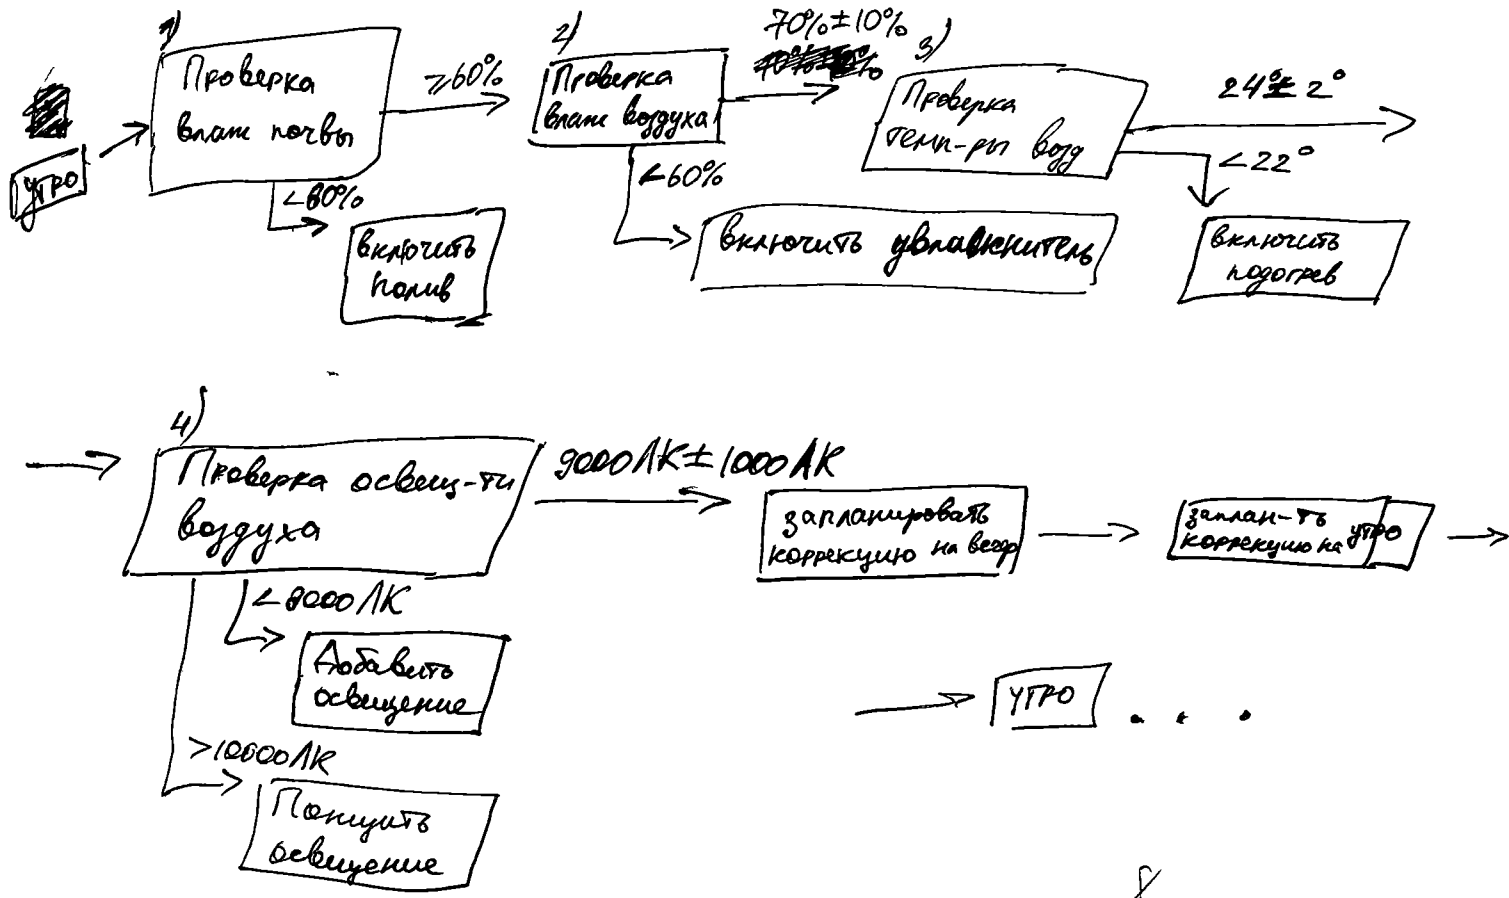 1)
Проверка
влаж почвы
утро
≥60%
<60%
включить
полив
2)
Проверка
влаж воздуха
70%±10%
<60%
включить увлажнитель
3)
Проверка
темп-ры возд
24°± 2°
<22°
включить
подогрев
4)
Проверка освещ-ти
воздуха
9000ЛК±1000ЛК
<8000ЛК
Добавить
освещение
>10000ЛК
Понизить
освещение
запланировать
коррекцию на вечер
заплан-ть
коррекцию на утро
утро . . .